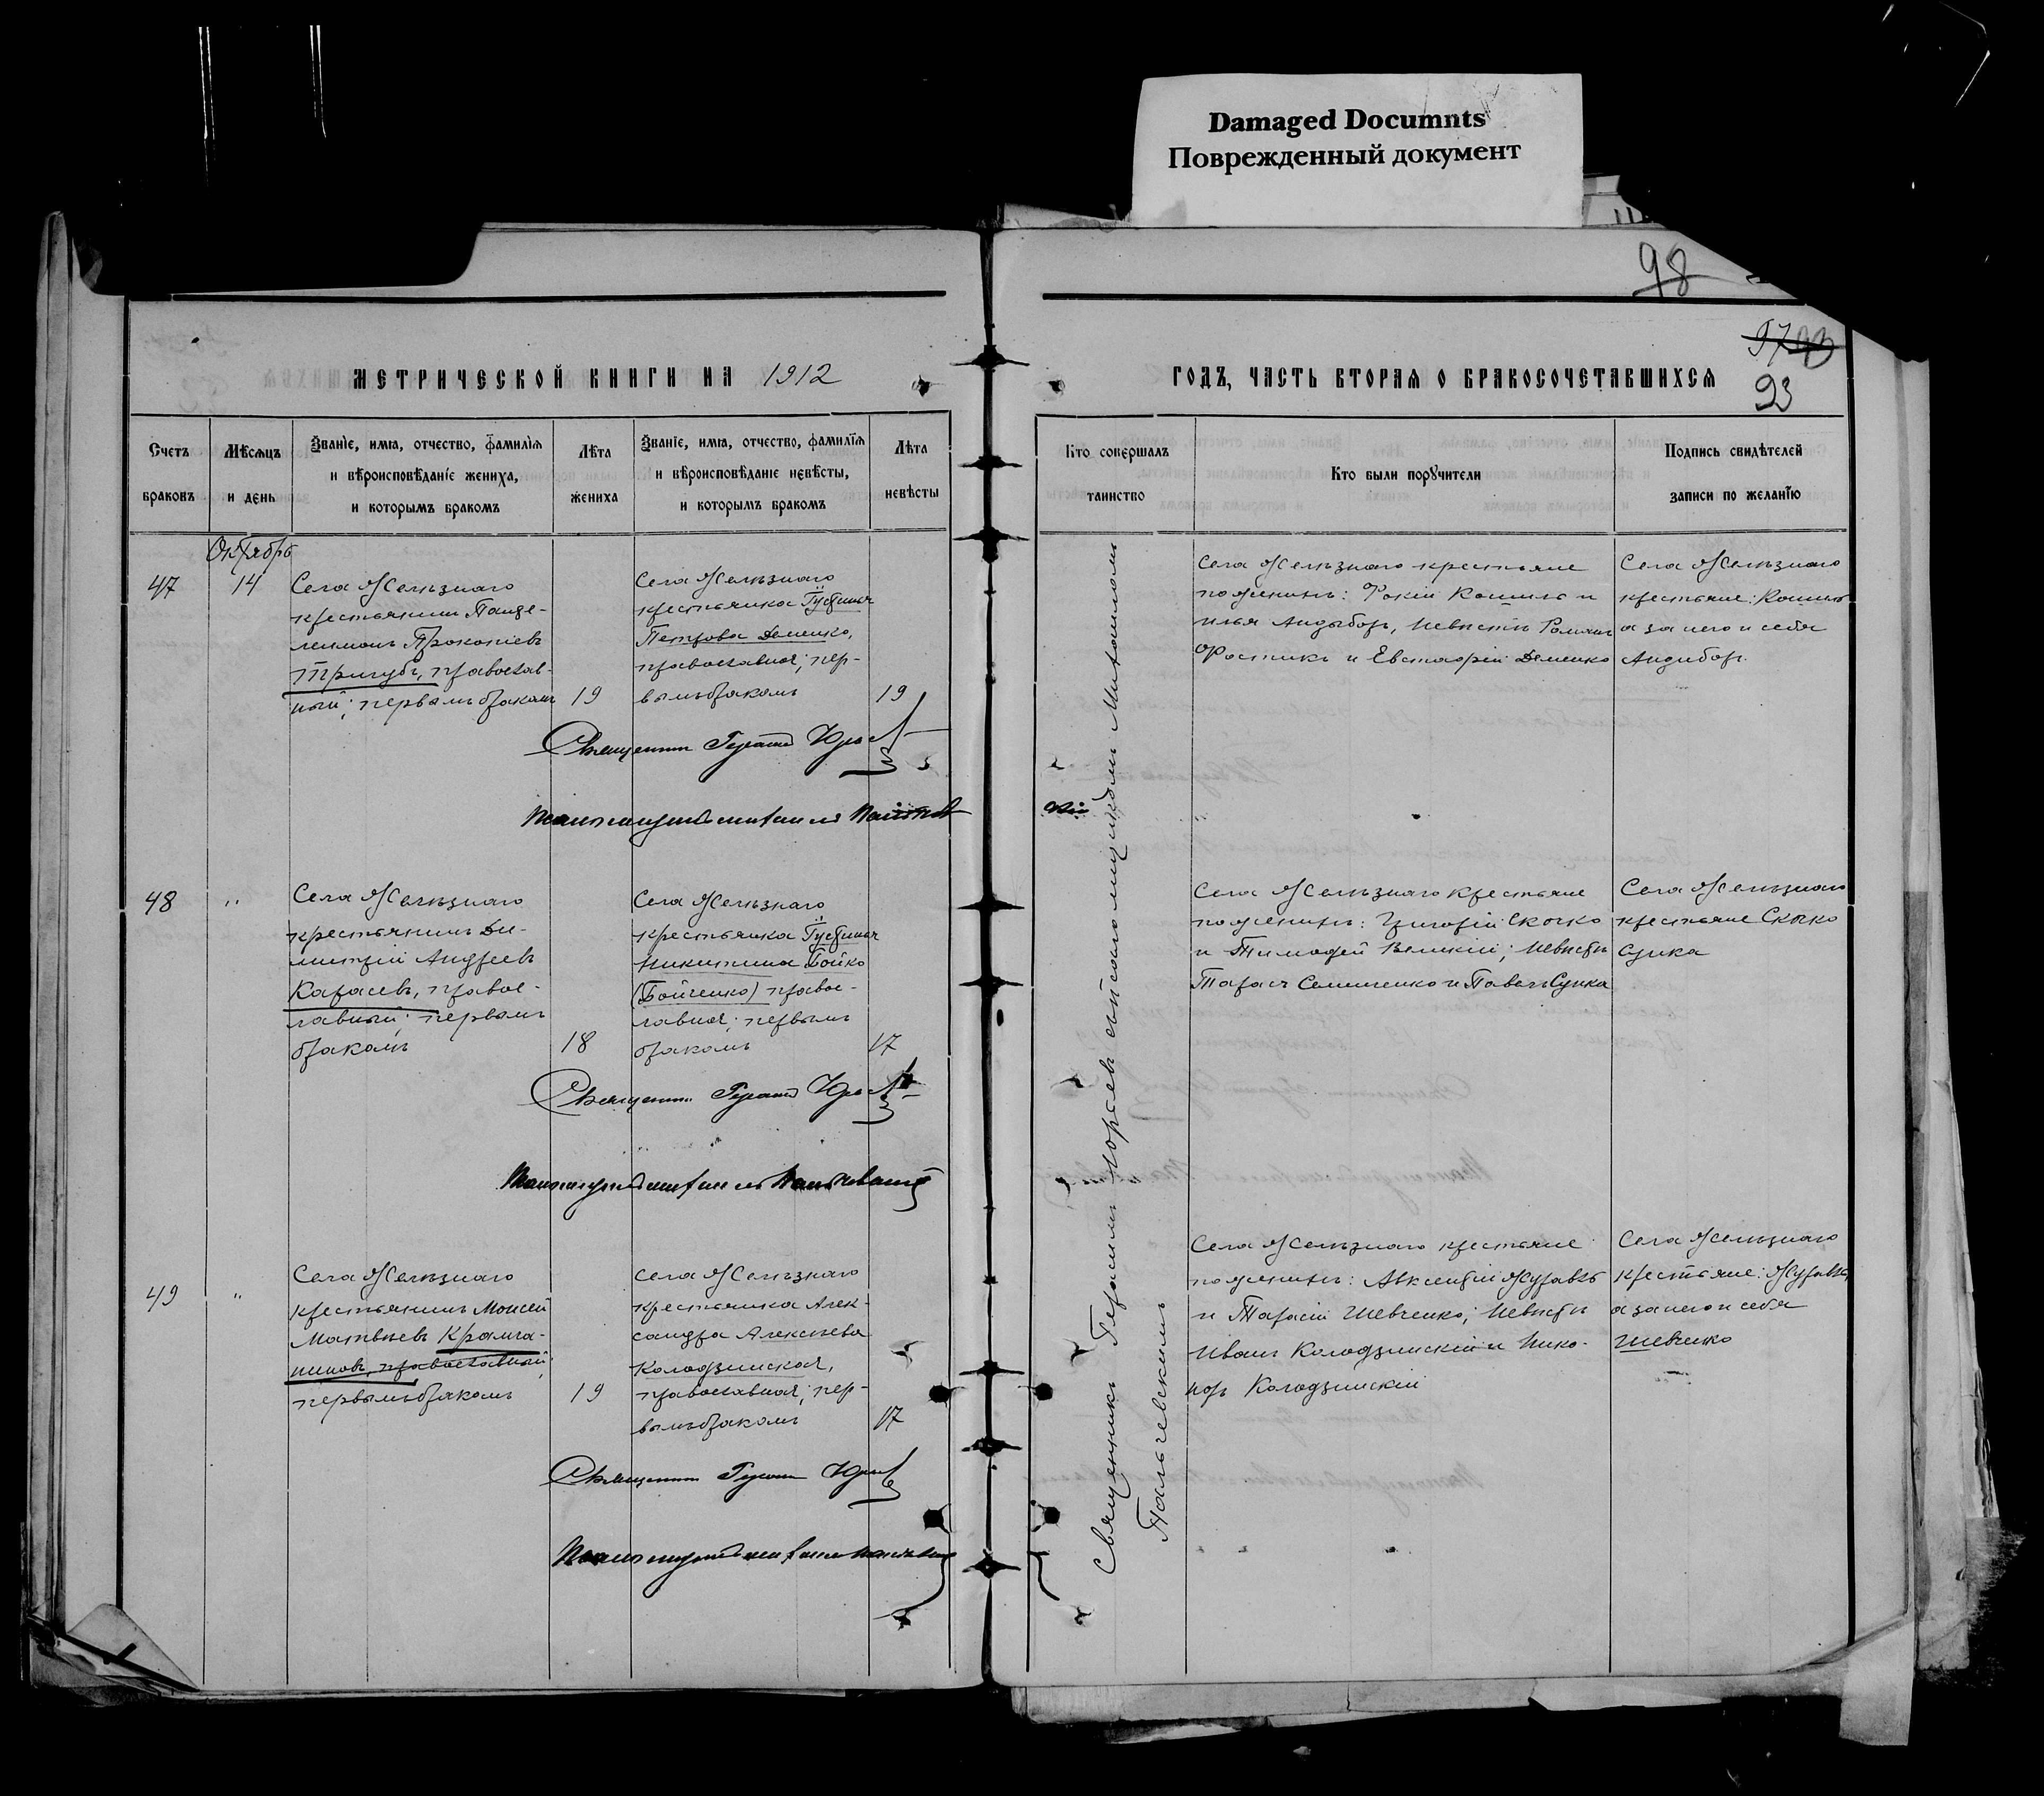 Damaged Documnts
Поврежденный документ
98
97 93
93
МЕТРИЧЕСКОЙ КНИГИ НА 1912
ГОДЪ, ЧАСТЬ ВТОРАЯ О БРАКОСОЧЕТАВШИХСЯ
Счетъ
браковъ
Мѣсяцъ
и день
Званіе, имя, отчество, фамилія
и вѣроисповѣданіе жениха,
и которымъ бракомъ
Лѣта
жениха
Званіе, имя, отчество, фамилія
и вѣроисповѣданіе невѣсты,
и которымъ бракомъ
Лѣта
невѣсты
Кто совершалъ
таинство
Кто были поручители
Подпись свидѣтелей
записи по желанію
Октябрь
47
14
Села Желѣзнаго
крестьянинъ Панде-
леимонъ Прокопіевъ
Тригубъ, православ-
ный; первымъ бракомъ
19
Села Желѣзнаго
крестьянка Іустинья
Петрова Деменко,
православная; пер-
вымъ бракомъ
19
Священникъ Герасимъ
Села Желѣзнаго крестьяне
по женихѣ: Фокій Кошиль и
Илья Андыборъ, невѣстѣ Романъ
Фостикъ и Евстафій Деменко
Села Желѣзнаго
крестьяне: Кошиль
а за него и себя
Андиборъ
48
"
Села Желѣзнаго
крестьянинъ Ди-
митрій Андреевъ
Карасевъ, правос-
лавный; первымъ
бракомъ
18
Села Желѣзнаго
крестьянка Іустинья
Никитина Бойко
(Бойченко) правос-
лавная; первымъ
бракомъ
17
Священникъ Герасимъ
Села Желѣзнаго крестьяне
по женихѣ: Григорій Скочко
и Тимофей Великій; невѣстѣ
Тарасъ Семиненко и Павелъ Супка
Села Желѣзнаго
крестьяне Скочко
Супка
49
"
Села Желѣзнаго
крестьянинъ Моисей
Матвѣевъ Крамча-
ниновъ, православный;
первымъ бракомъ
19
Села Желѣзнаго
крестьянка Алек-
сандра Алексѣева
Колодзинская,
православная; пер-
вымъ бракомъ
17
Священникъ Герасимъ
Села Желѣзнаго крестьяне
по женихѣ: Авксентій Журавль
и Тарасій Шевченко; невѣстѣ
Иванъ Колодзинскій и Нико-
норъ Колодзинскій
Села Желѣзнаго
крестьяне: Журавль,
а за него и себя
Шевченко
Священникъ Герасимъ Юрьевъ съ псаломщикомъ Митрофаномъ
Пальчевскимъ